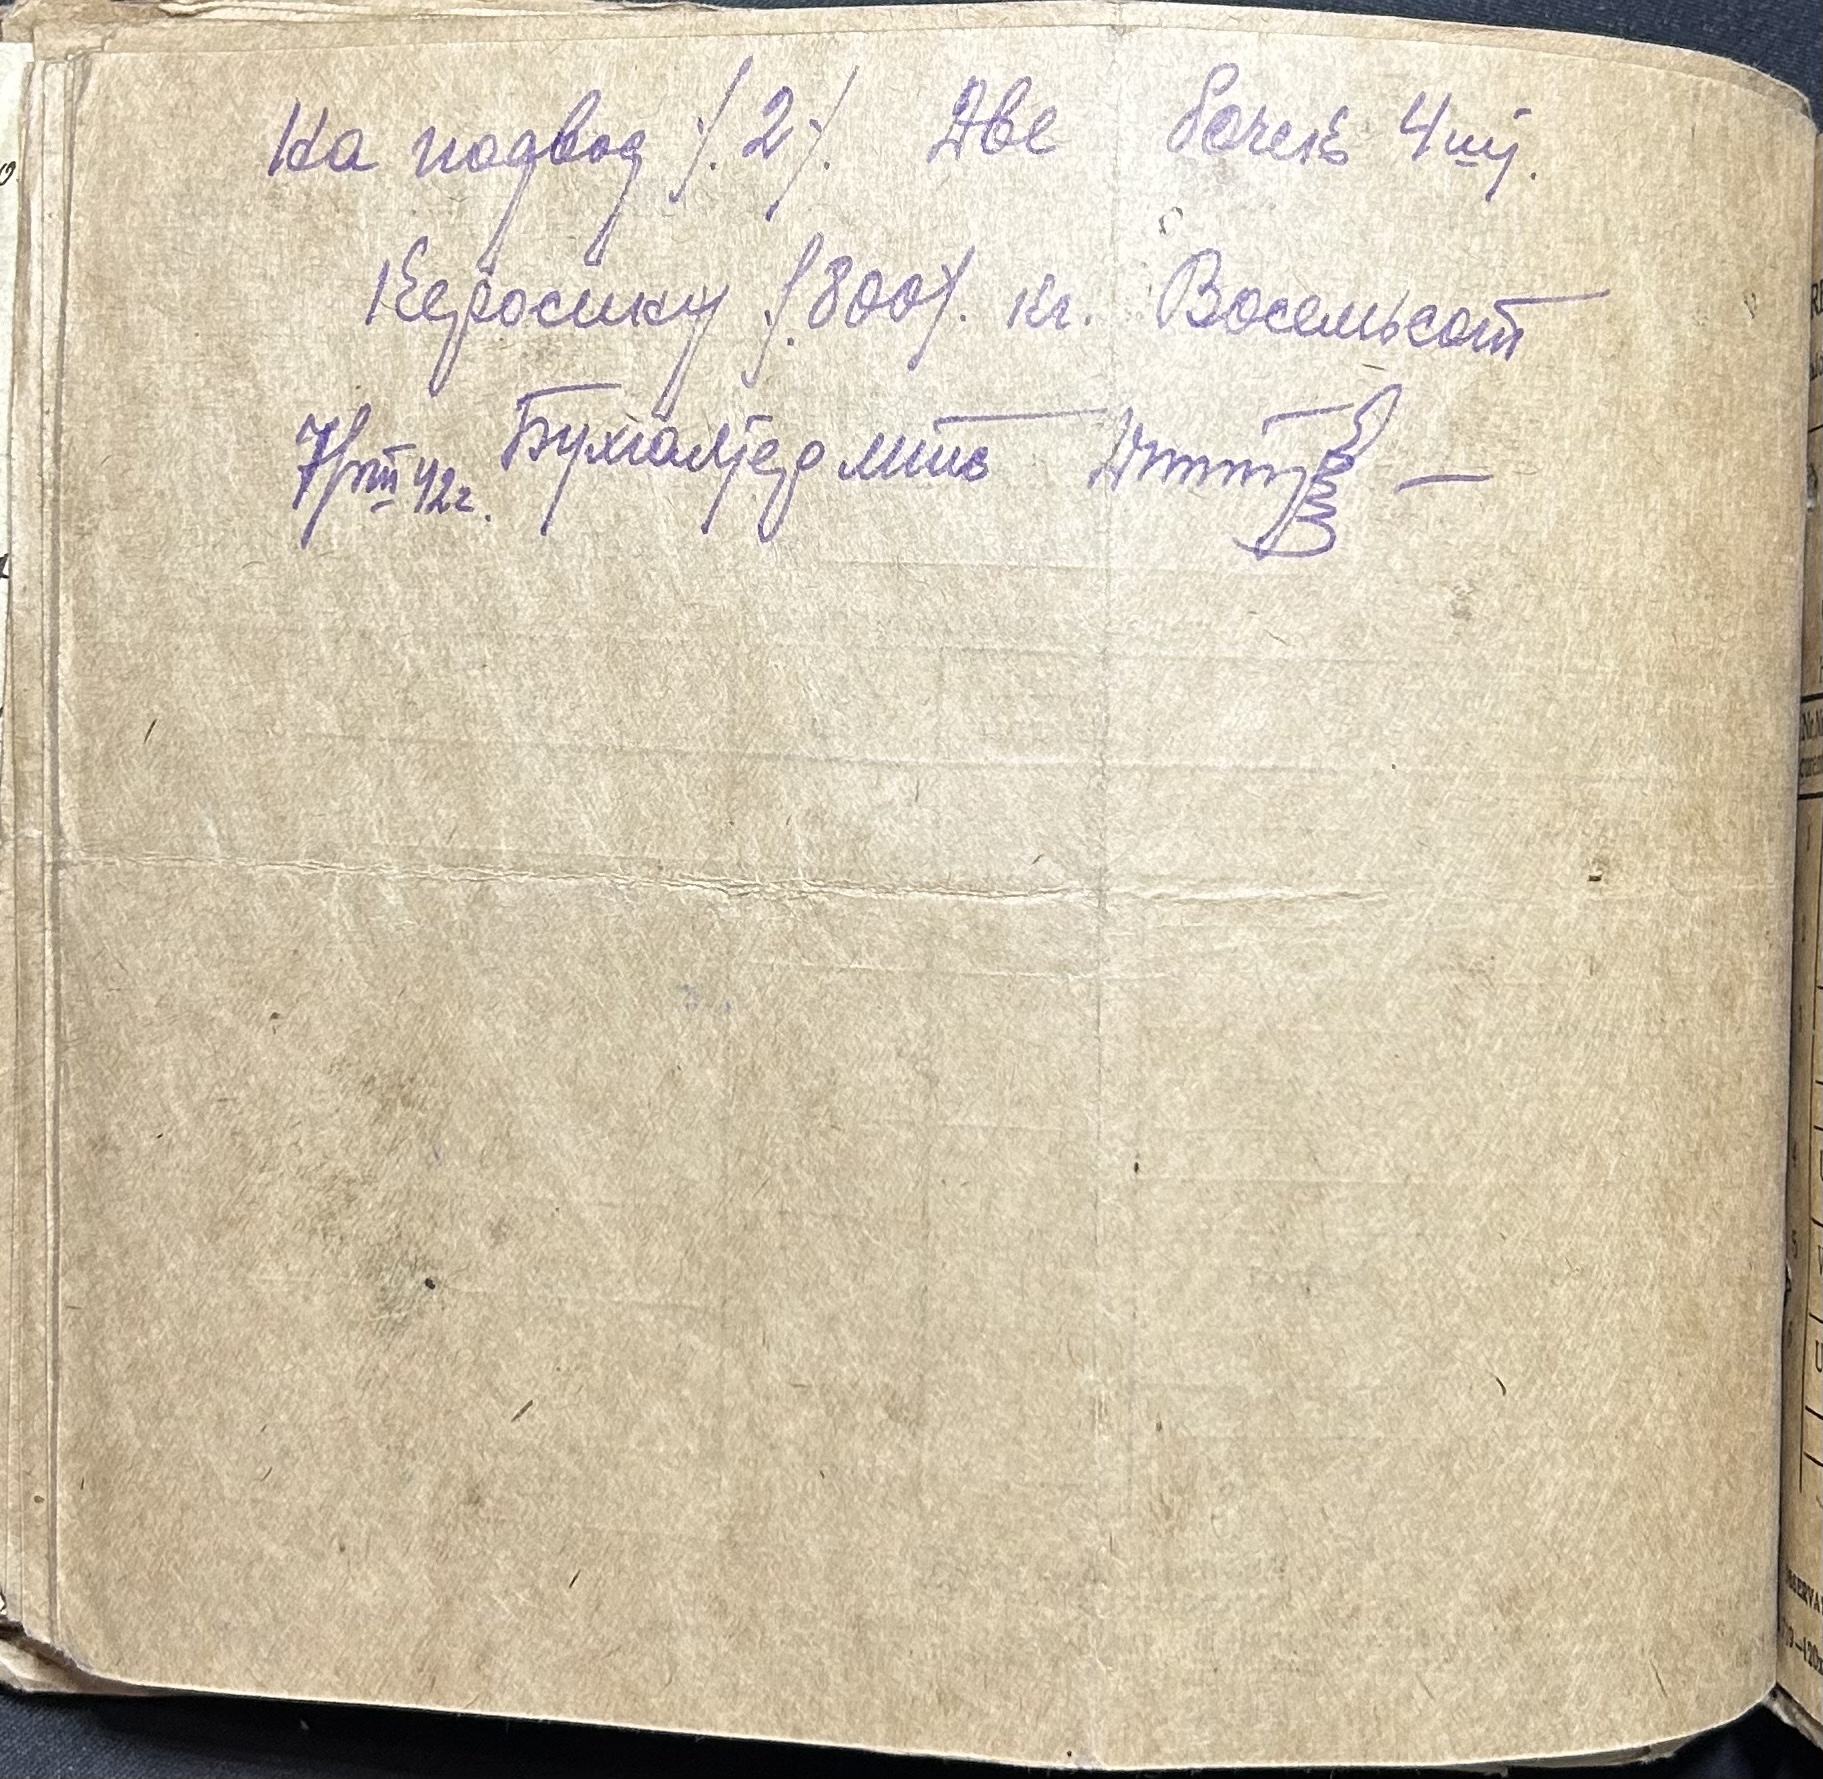 На подвод /.2/. Две бочек 4 шт.
Керосину /.800/. кг. Восемьсот
7/VIII 42 г. Бухгалтер